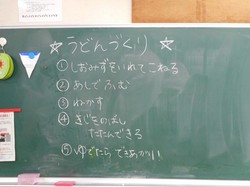 ☆うどんづくり☆
①しおみずをいれてこねる
②あしでふむ
③ねかす
④きじをのばし
たたんできる
⑤ゆでたらできあがり